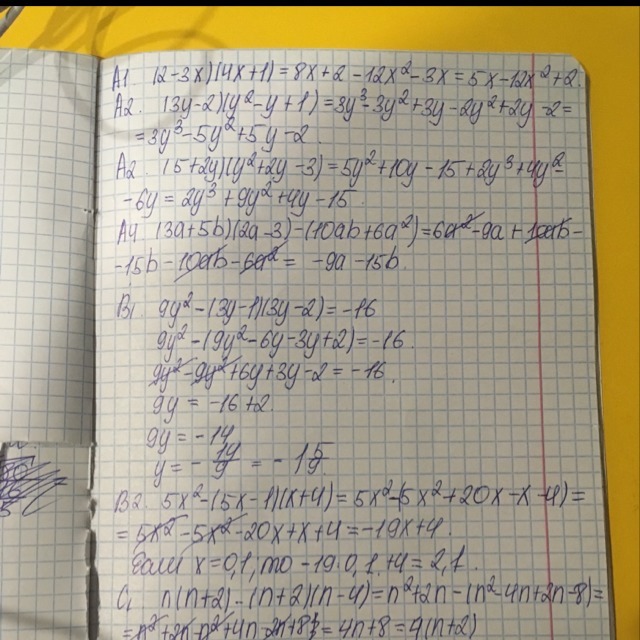 А1. (2-3x)(4x+1)=8x+2-12x²-3x=5x-12x²+2.
А2. (3y-2)(y²-y+1)=3y³-3y²+3y-2y²+2y-2=
=3y³-5y²+5y-2.
А2. (5+2y)(y²+2y-3)=5y²+10y-15+2y³+4y²-
-6y=2y³+9y²+4y-15.
А4. (3a+5b)(2a-3)-(10ab+6a²)=6a²-9a+10ab-
-15b-10ab-6a²= -9a-15b.
В1. 9y²-(3y-1)(3y-2)=-16
9y²-(9y²-6y-3y+2)=-16.
9y²-9y²+6y+3y-2=-16.
9y=-16+2.
9y=-14
y=-14/9=-1 5/9
В2. 5x²-(5x-1)(x+4)=5x²-(5x²+20x-x-4)=
=5x²-5x²-20x+x+4=-19x+4.
Если x=0,1, то -19·0,1+4=2,1.
С1 n(n+2)-(n+2)(n-4)=n²+2n-(n²-4n+2n-8)=
=n²+2n-n²+4n-2n+8=4n+8=4(n+2)